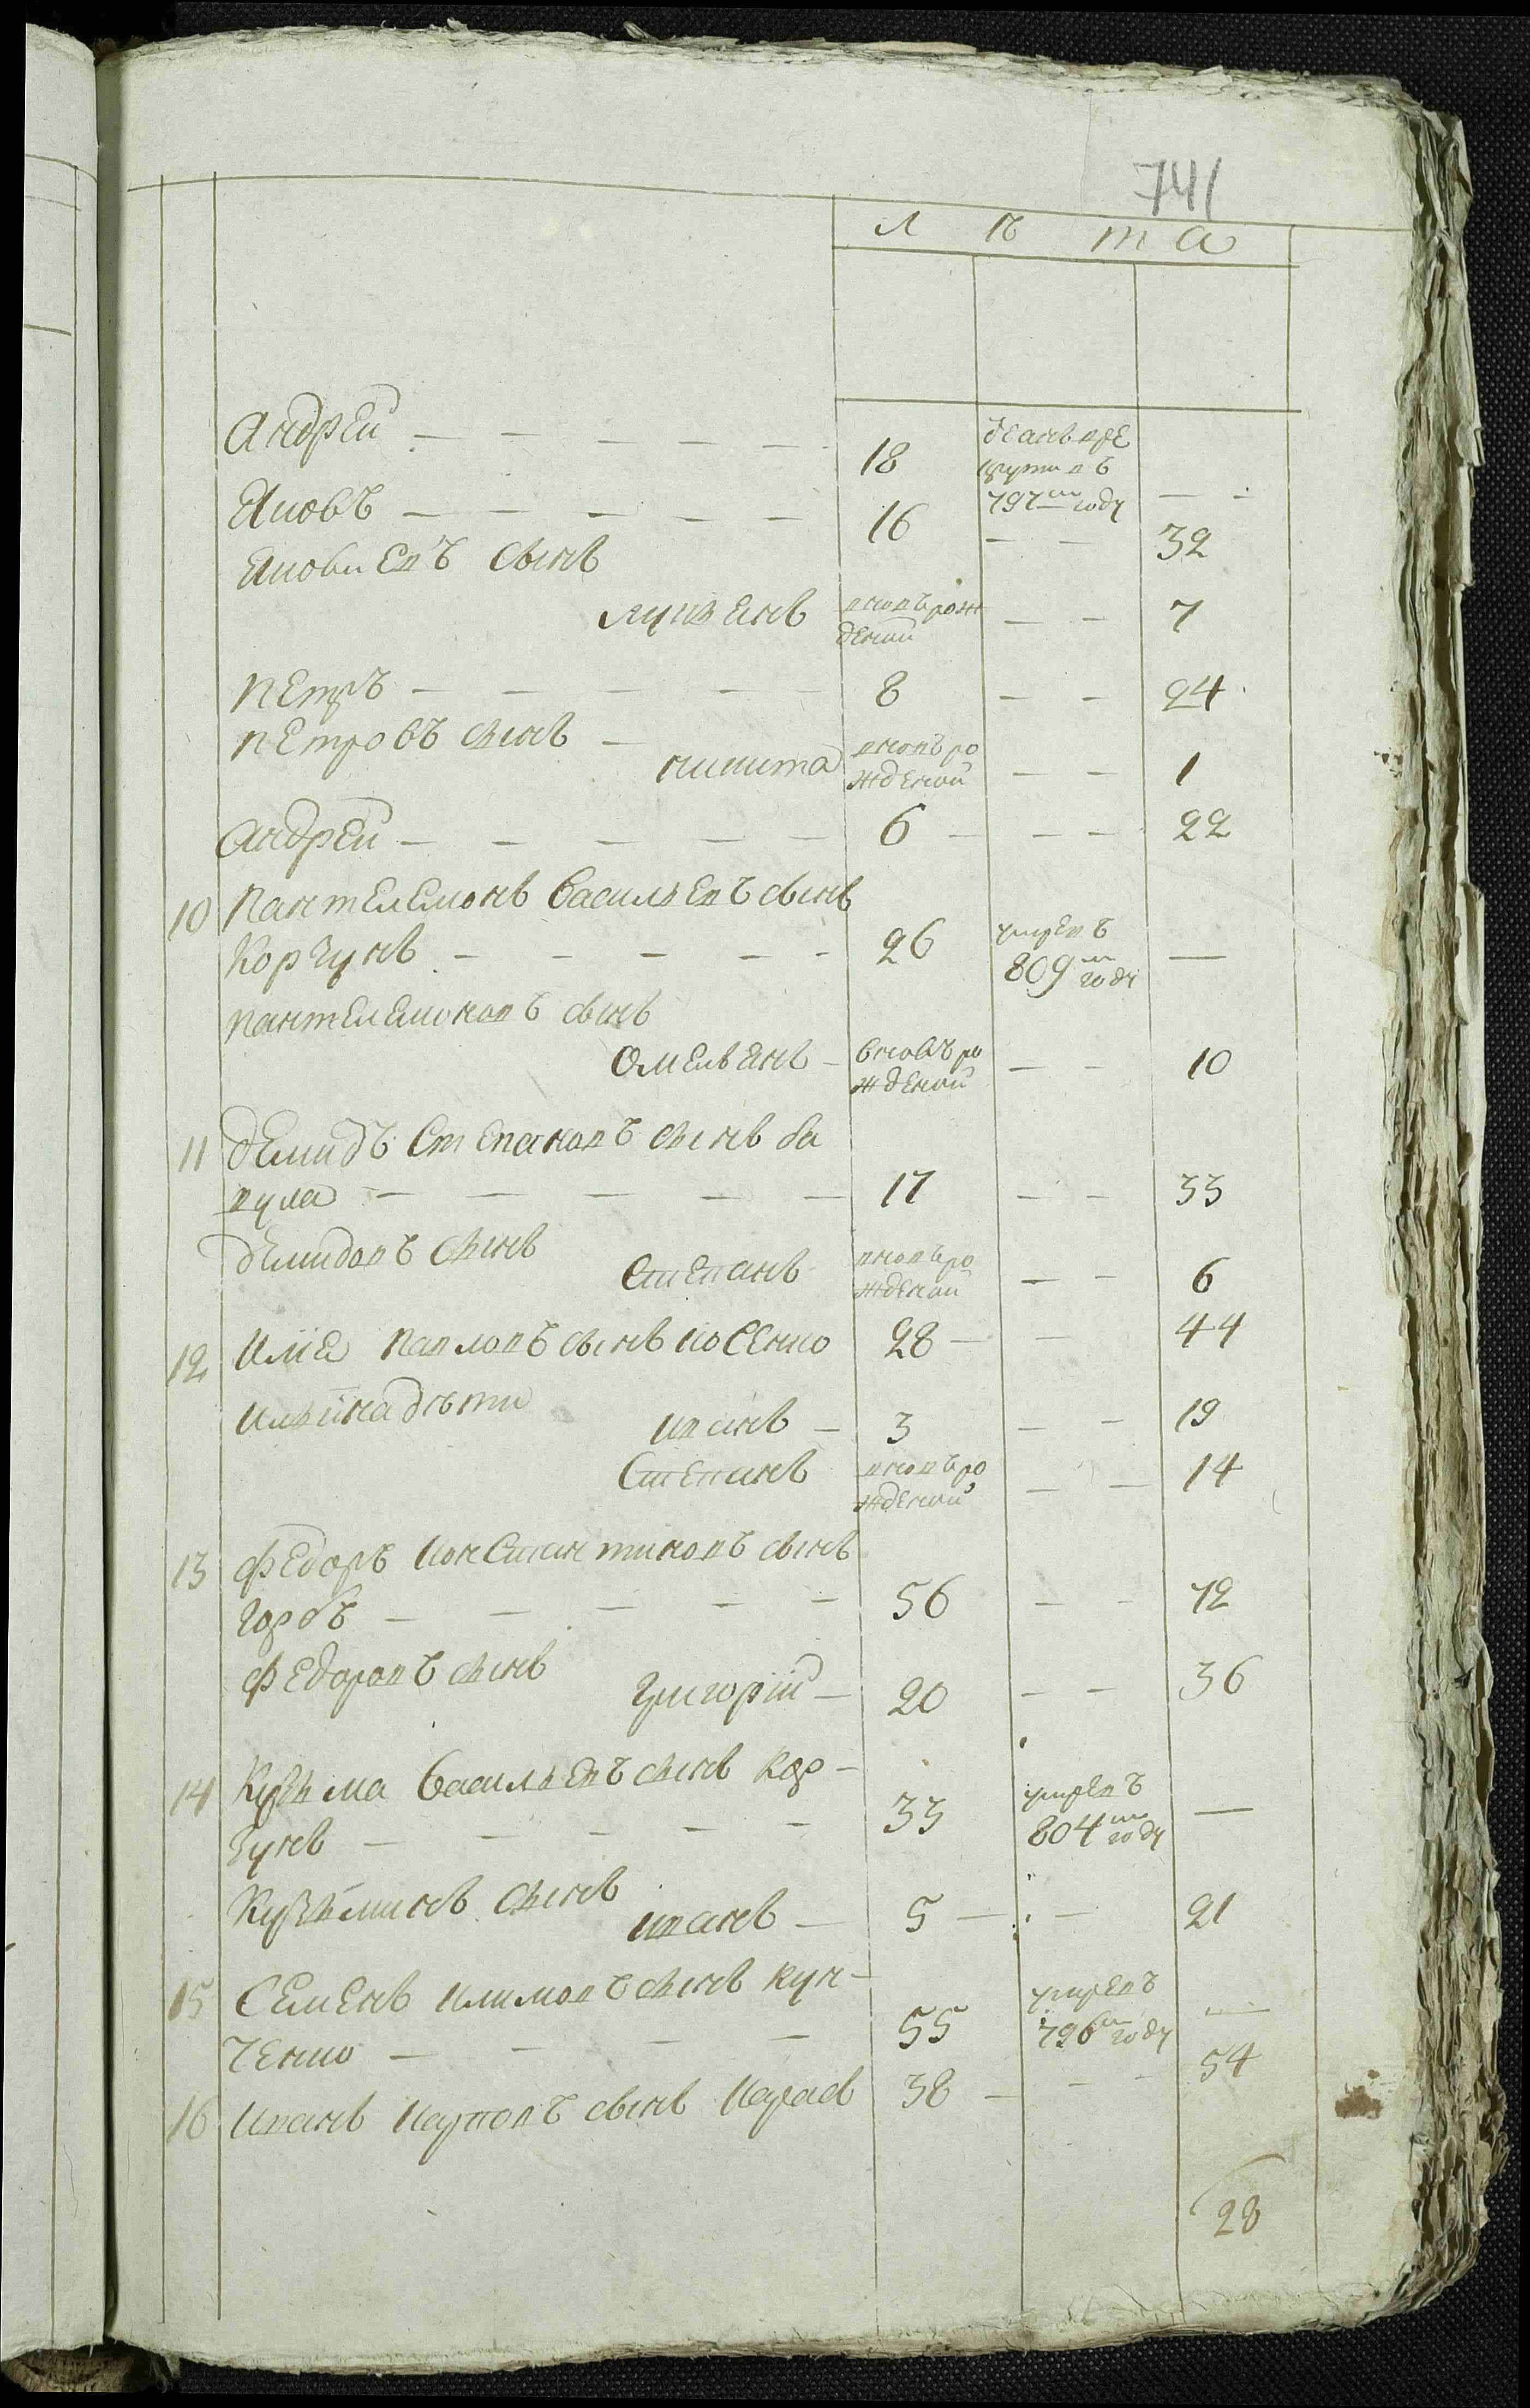 741
лѣта
Андрей — — — — — 18 взятъ въ ре
крути въ
797м году — —
Яковъ — — — — — 16 — — 32
Яковлевъ сынъ
Лукьянъ вновь рож
деный — — 7
Петръ — — — — 8 — — 24
Петровъ сынъ —
Никита вновь ро
жденой — — 1
Андрей — — — — — 6 — — — 22
10 Пантелемонъ Васильевъ сынъ
Корзунъ — — — — — 26 умревъ
809м году —
Пантелемоновъ сынъ
Омельянъ — вновь ро
жденой — — 10
11 Демидъ Степановъ сынъ ва
кула — — — — — 17 — — 33
Демидовъ сынъ
Степанъ вновь ро
жденой — — 6
12 Илія Павловъ сынъ косенко 28 — — 44
Ильина дѣти
Иванъ — 3 — — 19
Степанъ вновь ро
жденой — — 14
13 Федоръ Константиновъ сынъ
горбъ — — — — — 56 — — 72
Федоровъ сынъ
Григорій — 20 — — 36
14 Кузьма Васильевъ сынъ Кор-
зунъ — — — — — 33 умревъ
804м году —
Кузьминъ сынъ
Иванъ — 5 — — 21
15 Семенъ Климовъ сынъ кун-
ченко — — — — 55 умревъ
796м году —
16 Иванъ Карповъ сынъ 38 — — — 54
28